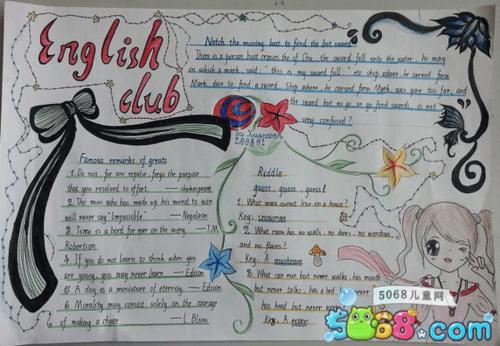 English
club
Notch the moving boat to find the lost sword
There is a person boat crosses the of Chu, the sword fall into the water, he may
in which a mark, said: "this is my sword fall." etc ship where he carved form
Mark dove to find a sword. Ship where he carved form Mark was gone too far, and
the sword but no go, so go ford swords, is not
very confused?
Famous remarks of greats
1. Do not, for one repulse, forgo the purpose
that you resolved to effort. — shakespeare
2. The man who has made up his mind to win
will never say "Impossible" — Napoleon
3. Time is a bird for ever on the wing. — T.W
Robertson
4. If you do not learn to think when you
are young, you may never learn. — Edison
5. A day is a miniature of eternity. — Edison
6. Morality may consist solely in the courage
of making a choice. — L.Blum
Riddle
guess, guess, guess!
1. What man cannot live in a house?
Key: snowman
2. What room has no walls, no doors, no windows,
and no floors?
Key: A mushroom
3. What can run but never walks, has mouth
but never talks, has a bed but never
has head but never
Key: A river
5068儿童网
5068.com